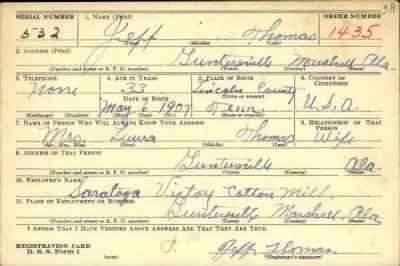 3A
SERIAL NUMBER 1. NAME (Print) ORDER NUMBER
532 Jeff Thomas 1435
(First) (Middle) (Last)
2. ADDRESS (Print)
Guntersville Marshall Ala.
(Number and street or R. F. D. number) (Town) (County) (State)
3. TELEPHONE 4. AGE IN YEARS 5. PLACE OF BIRTH 6. COUNTRY OF CITIZENSHIP
None 33 Lincoln County U.S.A.
DATE OF BIRTH (Town or county)
May 6 1907 Tenn.
(Exchange) (No.) (Mo.) (Day) (Yr.) (State or country)
7. NAME OF PERSON WHO WILL ALWAYS KNOW YOUR ADDRESS 8. RELATIONSHIP OF THAT PERSON
Mrs. Laura Thomas Wife
(Mr., Mrs., Miss) (First) (Middle) (Last)
9. ADDRESS OF THAT PERSON
Guntersville Ala
(Number and street or R. F. D. number) (Town) (County) (State)
10. EMPLOYER'S NAME
Saratoga Victory Cotton Mill.
11. PLACE OF EMPLOYMENT OR BUSINESS
Guntersville Marshall, Ala
(Number and street or R. F. D. number) (Town) (County) (State)
I AFFIRM THAT I HAVE VERIFIED ABOVE ANSWERS AND THAT THEY ARE TRUE.
REGISTRATION CARD Jeff Thomas
D. S. S. Form 1 (Registrant's signature)